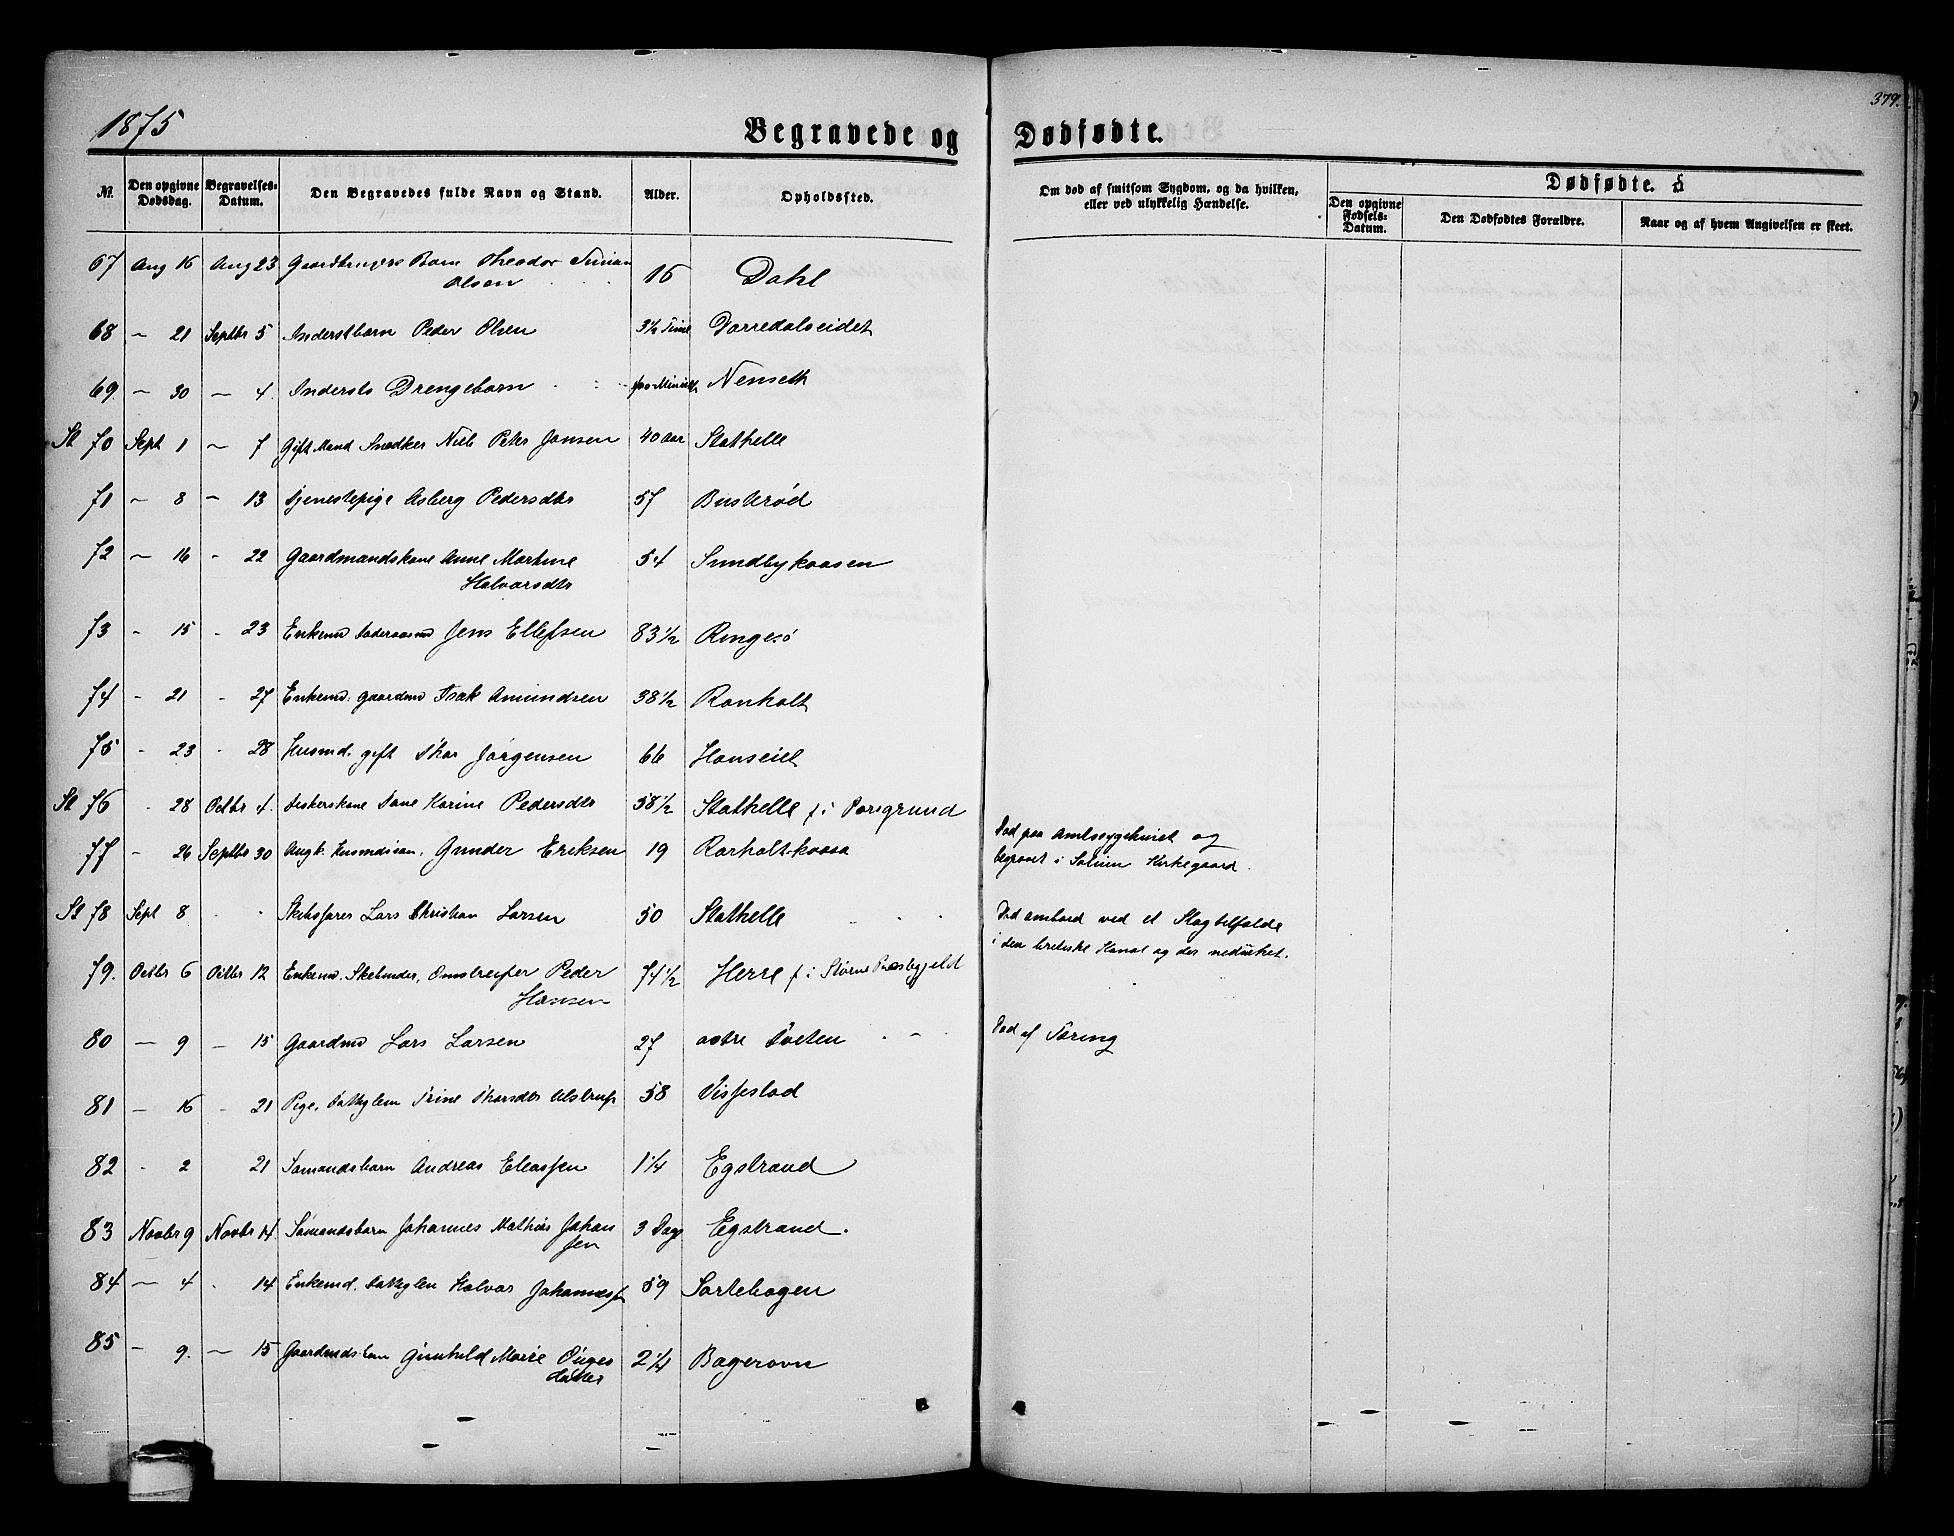 1875
379.
Begravede og Dødfødte.
№.
Den opgivne Dødsdag.
Begravelses-Datum.
Den Begravedes fulde Navn og Stand.
Alder.
Opholdssted.
Om død af smitsom Sygdom, og da hvilken,
eller ved ulykkelig Hændelse.
Dødfødte.
Den opgivne Fødsels-Datum.
Den Dødfødtes Forældre.
Naar og af hvem Angivelsen er skeet.
67 Aug 16 Aug 23 Gaardbrugers Barn Theodor
Olsen 16 Dahl
68 – 21 Septbr 5 Inderstbarn Peder Olsen 3½ Time
69. – 30 – 4. Indersts Drengebarn Nenseth
St 70 Sept 1 – 7 Gift Mand Snedker Niels Peter Jansen 40 Aar Stathelle
71 – 8 – 13 Tjenestepige Asberg Pedersdtr 57 Buskrød
72 – 16 - 22 Gaardmandskone Anne Martine
Halvorsdtr 54 Sundbykaasen
73 - 15 - 23 Enkemd Jens Ellefsen 83½ Ringesø
74 - 21 - 27 Enkemd. gaardmd Isak Amundsen 38½ Ronholt
75 - 23 - 28 Husmd. gift Thor Jørgensen 66 Hanseiet
St 76 - 28 Octbr 4. Karine Pedersdtr 58½ Stathelle f i Porsgrund
77 - 26 Septbr 30 Ungk. Gunder Eriksen 19 Rørholt-kaasa
Død paa Amtssygehuset og
begravet i Solum Kirkegaard.
St 78 Sept 8 - - Skibsfører Lars Christian Larsen 50 Stathelle
Død ombord ved et Slagtilfælde
i den britiske Kanal og der nedsænket.
79. Octbr 6 Octbr 12 Enkemd. Peder
Hansen 74½ Herre f i
80 – 9 – 15 Gaardmd Lars Larsen 27 østre Tveten
Død af Tæring
81 – 16 - 21 Pige, Fattiglem Trine Thorsdtr 58
82 - 2 21 Sømandsbarn Andreas Eliassen 1¼ Egstrand
83 Novbr 9 Novbr 14 Sømandsbarn Johannes Mathias Johan
sen 3 Dage Egstrand.
84 – 4 - 14 Enkemd. Fattiglem Halvor Johannessen 59 Sortebogen
85 – 9. – 15 Gunhild Marie
datter 2¼ Bagerovn